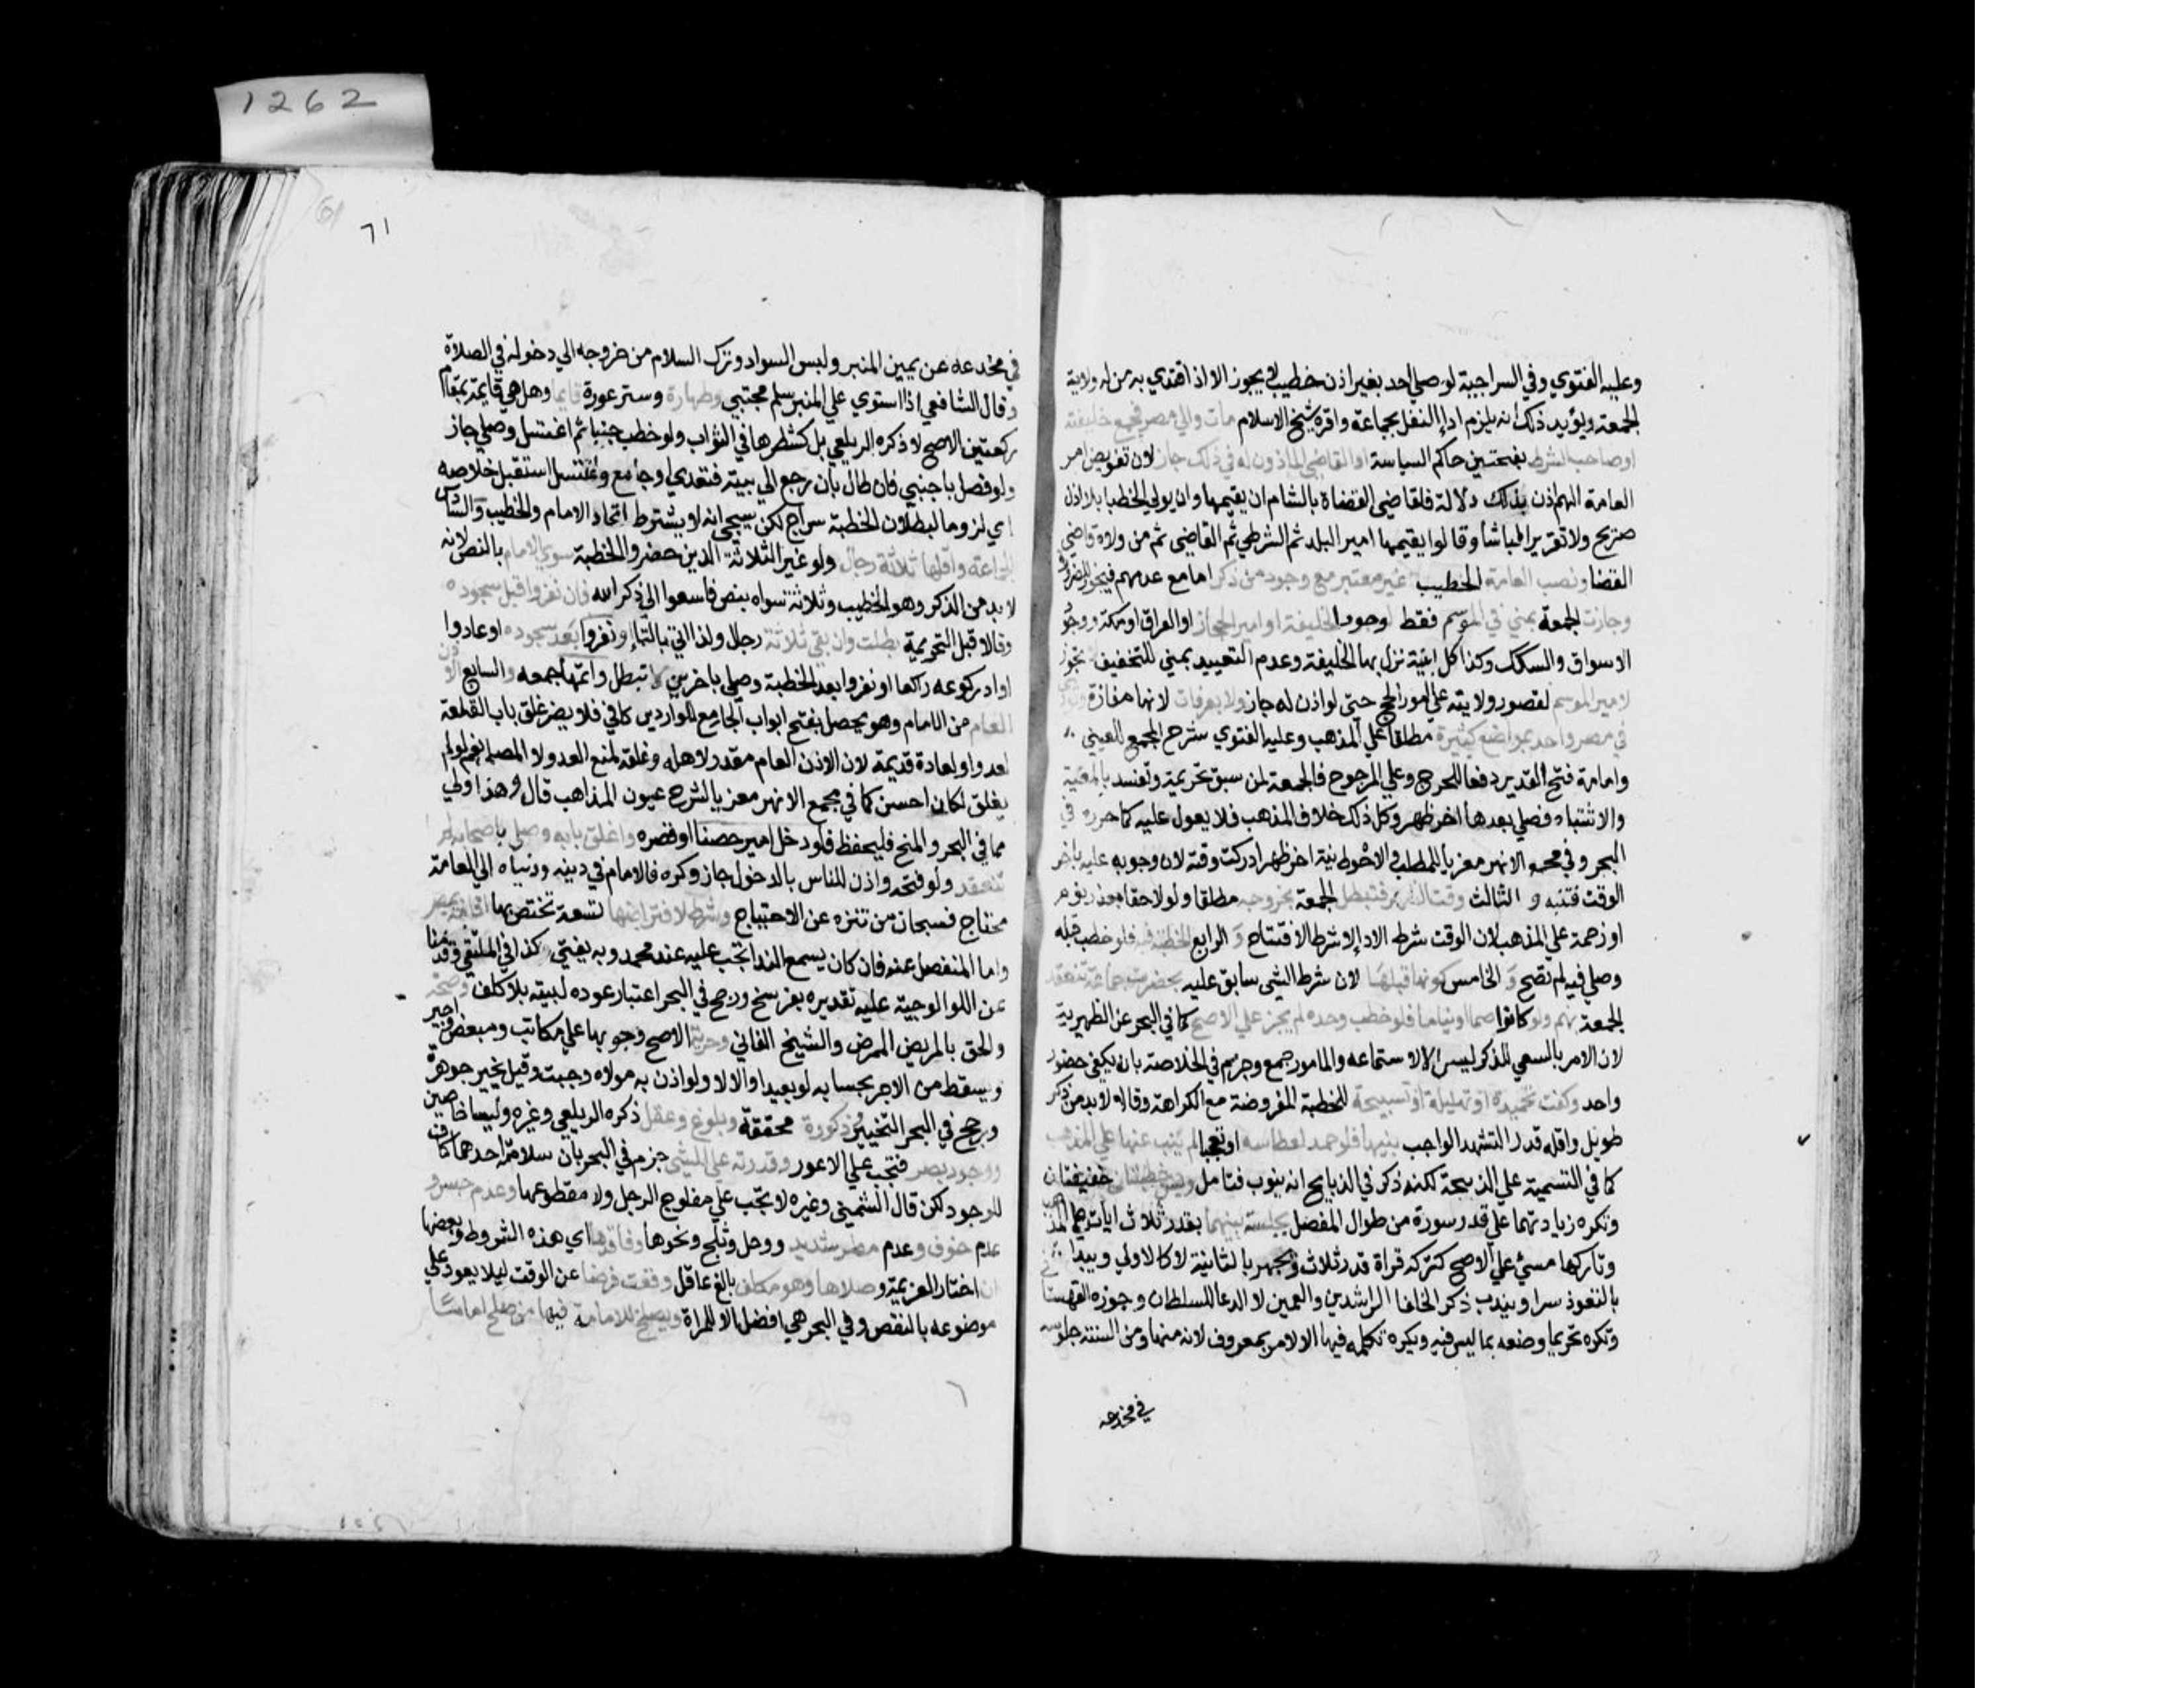 وعليه الفتوي وفي السراجية لو صلي احد بغير اذن خطيب لا يجوز الا اذا اقتدي به من له ولاية
الجمعة ويؤيد ذلك انه يلزم ادا النفل بجماعة واقره شيخ الاسلام مات والي مصر فجمع خليفته
او صاحب الشرط بفتحتين حاكم السياسة او القاضي الماذون له في ذلك جاز لان تفويض امر
العامة اليهم اذن بذلك دلالة فلقاضي القضاة بالشام ان يقيمها وان يولي الخطبا بلا اذن
صريح ولا تقرير الباشا وقالوا يقيمها امير البلد ثم الشرطي ثم القاضي ثم من ولاه قاضي
القضا ونصب العامة الخطيب غير معتبر مع وجود من ذكر اما مع عدمهم فيجوز للضرورة
وجازت الجمعة بمني في الموسم فقط لوجود الخليفة او امير الحجاز او العراق او مكة ووجود
الاسواق والسكك وكذا كل ابنية نزل بها الخليفة وعدم التعييد بمني للتخفيف لا تجوز
لامير الموسم لقصور ولايته علي امور الحج حتي لو اذن له جاز ولا بعرفات لانها مفازة
في مصر واحد بمواضع كثيرة مطلقا علي المذهب وعليه الفتوي شرح المجمع للعيني
وامامة فتح القدير دفعا للحرج وعلي المرجوح فالجمعة لمن سبق تحريمة وتفسد بالمعية
والاشتباه فصلي بعدها اخر ظهر وكل ذلك خلاف المذهب فلا يعول عليه كما حرره في
البحر وفي مجمع الانهر معزيا للمطلب والاحوط نية اخر ظهر ادركت وقته لان وجوبه عليه باخر
الوقت فتنبه و الثالث وقت الظهر فتبطل الجمعة بخروجه مطلقا ولو لاحقا بعذر نوم
او زحمة علي المذهب لان الوقت شرط الادا لا شرط الافتتاح و الرابع الخطبة فيه فلو خطب قبله
وصلي فيه لم تصح و الخامس كونها قبلها لان شرط الشي سابق عليه بحضرت جماعة تنعقد
الجمعة بهم ولو كانوا صما او نياما فلو خطب وحده لم يجز علي الاصح كما في البحر عن الظهيرية
لان الامر بالسعي للذكر ليس الا لاستماعه والمامور جمع وجزم في الخلاصة بان يكفي حضور
واحد وكفت تحميدة او تهليلة او تسبيحة للخطبة المفروضة مع الكراهة وقالا لا بد من ذكر
طويل واقله قدر التشهد الواجب بنيتها فلو حمد لعطاسه او تعجبا لم ينب عنها علي المذهب
كما في التسمية علي الذبيحة لكنه ذكر في الذبايح انه ينوب فتامل ويسن خطبتان خفيفتان
وتكره زيادتهما علي قدر سورة من طوال المفصل بجلسة بينهما بقدر ثلاث ايات علي المذهب
وتاركها مسيئ علي الاصح كتركه قراة قدر ثلاث ويجهر بالثانية لا كالاولي ويبدا
بالتعوذ سرا ويندب ذكر الخلفا الراشدين والعمين لا الدعا للسلطان وجوزه القهستاني
وتكره تحريما وصفه بما ليس فيه ويكره تكلمه فيها الا لامر بمعروف لانه منها ومن السنة جلوسه
في مخدعه
1262
٦١
في مخدعه عن يمين المنبر ولبس السواد وترك السلام من خروجه الي دخوله في الصلاة
وقال الشافعي اذا استوي علي المنبر سلم مجتبي وطهارة وستر عورة قايما وهل هي قايمة مقام
ركعتين الاصح لا ذكره الزيلعي بل كشطرها في الثواب ولو خطب جنبا ثم اغتسل وصلي جاز
ولو فصل باجنبي فان طال بان رجع الي بيته فتغدي او جامع واغتسل استقبل خلاصه
اي لزوما لبطلان الخطبة سراج لكن سيجي انه لا يشترط اتحاد الامام والخطيب والسادس
الجماعة واقلها ثلاثة رجال ولو غير الثلاثة الذين حضروا الخطبة سوي الامام بالنص لانه
لا بد من الذكر وهو الخطيب وثلاثة سواه بنص فاسعوا الي ذكر الله فان نفروا قبل سجوده
وقالا قبل التحريمة بطلت وان بقي ثلاثة رجال ولذا اتي بالتا او نفروا بعد سجوده او عادوا
او ادركوعه راكعا او نفروا بعد الخطبة وصلي باخرين لا تبطل واتمها جمعه والسابع الاذن
العام من الامام وهو يحصل بفتح ابواب الجامع للواردين كافي فلا يضر غلق باب القلعة
لعدو او لعادة قديمة لان الاذن العام مقدر لاهله وغلقه لمنع العدو لا المصلي نعم لو لم
يغلق لكان احسن كما في مجمع الانهر معزيا لشرح عيون المذاهب قال وهذا اولي
مما في البحر والمنح فليحفظ فلو دخل امير حصنا او قصره واغلق بابه وصلي باصحابه لم
تنعقد ولو فتحه واذن للناس بالدخول جاز وكره فالامام في دينه ودنياه الي العامة
محتاج فسبحان من تنزه عن الاحتياج وشرط لافتراضها تسعة تختص بها اقامة بمصر
واما المنفصل عنه فان كان يسمع الندا تجب عليه عند محمد وبه يفتي كذا في الملتقي وقدمنا
عن اللوالوجية عليه تقديره بفرسخ ورجح في البحر اعتبار عوده لبيته بلا كلف وصحة
والحق بالمريض الممرض والشيخ الفاني وحرية الاصح وجوبها علي مكاتب ومبعض واجير
ويسقط من الاجر بحسابه لو بعيدا والا لا ولو اذن به مولاه وجبت وقيل يخير جوهرة
ورجح في البحر التخيير وذكورة محققة وبلوغ وعقل ذكره الزيلعي وغيره وليسا خاصين
ووجود بصر فتجب علي الاعور وقدرته علي المشي جزم في البحر بان سلامة احدهما كاف
للوجود لكن قال الشمني وغيره لا تجب علي مفلوج الرجل ولا مقطوعها وعدم حبس و
عدم خوف وعدم مطر شديد ووحل وثلج ونحوها وفاقدها اي هذه الشروط وبعضها
ان اختار العزيمة وصلاها وهو مكلف بالغ عاقل وقعت فرضا عن الوقت ليلا يعود علي
موضوعه بالنقص وفي البحر هي افضل الا للمراة ويصلح للامامة فيها من صلح اماما